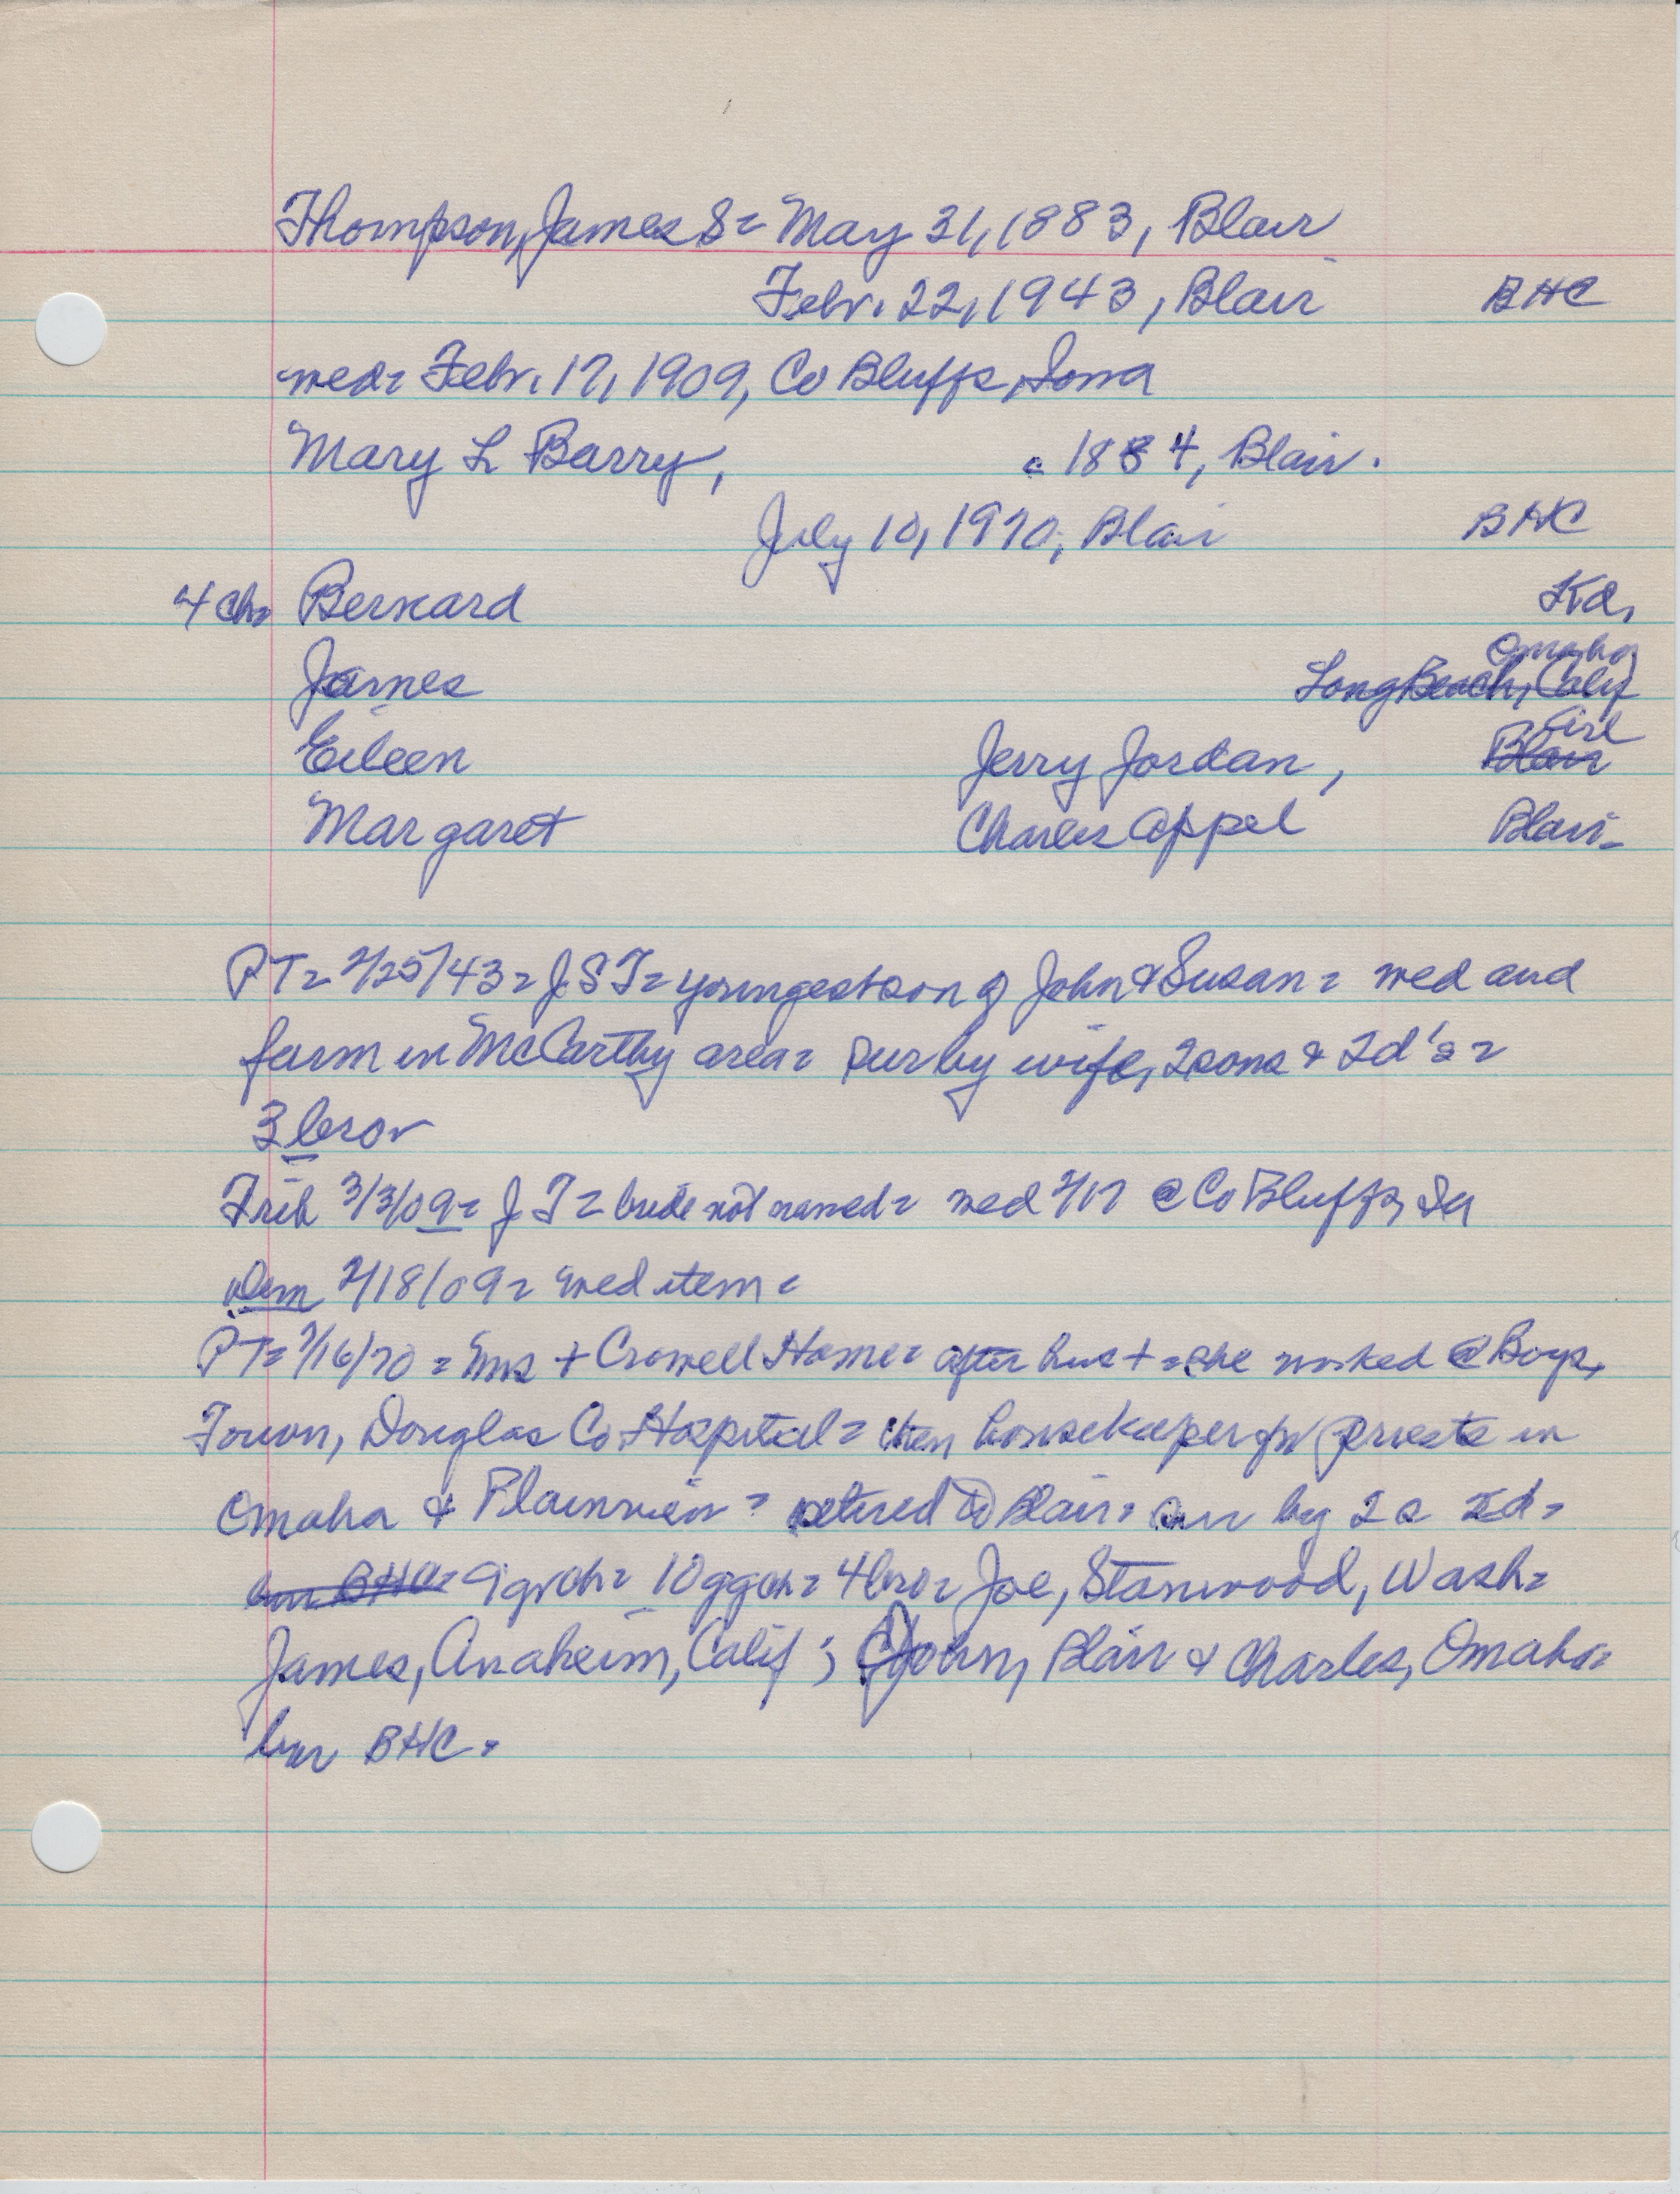 Thompson, James S = May 31, 1883, Blair
Febr. 22, 1943, Blair BHC
wed = Febr. 17, 1909, Co Bluffs, Iowa
Mary L Barry, c 1884, Blair.
July 10, 1970, Blair BHC
4 ch = Bernard Ka,
Omaha
James Long Beach, Calif
Girl
Eileen Jerry Jordan, Blair
Margaret Charles Appel Blair =
PT = 2/25/43 = J.S T = youngest son of John & Susan = wed and
farm in McCarthy area = sur by wife, 2 sons & 2 d's =
3 bro
Trib 3/3/09 = J T = bride not named = wed 2/17 @ Co Bluffs, Ia
Dem 2/18/09 = wed item =
PT = 7/16/70 = Mrs + Crowell Home = after hus + = she worked @ Boys
Town, Douglas Co Hospital = then housekeeper for priests in
Omaha & Plainview = retired to Blair = sur by 2 s 2 d =
bur BHC = 9 grch = 10 ggch = 4 bro = Joe, Stanwood, Wash =
James, Anaheim, Calif ; John, Blair & Charles, Omaha =
bur BHC.